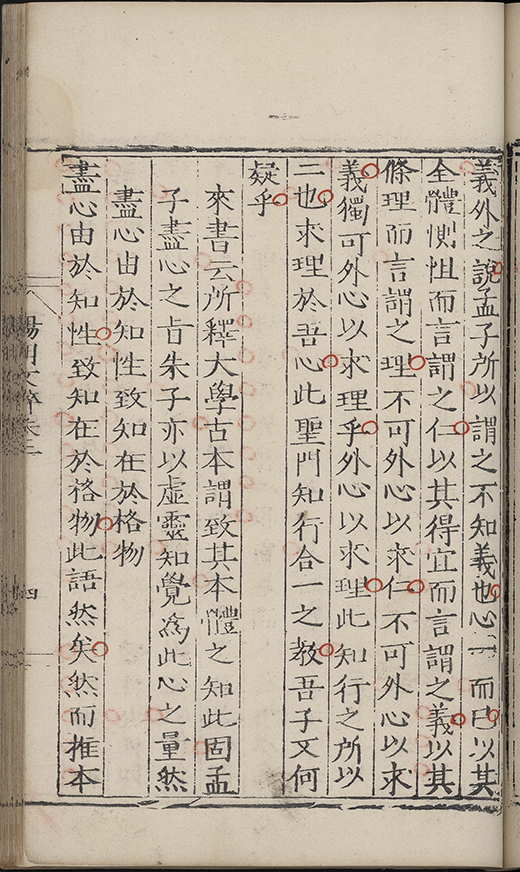 義外之說孟子所以謂之不知義也心一而已以其
全體惻怛而言謂之仁以其得宜而言謂之義以其
條理而言謂之理不可外心以求仁不可外心以求
義獨可外心以求理乎外心以求理此知行之所以
二也求理於吾心此聖門知行合一之教吾子又何
疑乎
來書云所釋大學古本謂致其本體之知此固孟
子盡心之旨朱子亦以虛靈知覺爲此心之量然
盡心由於知性致知在於格物
盡心由於知性致知在於格物此語然矣然而推本
陽明文粹卷二
四